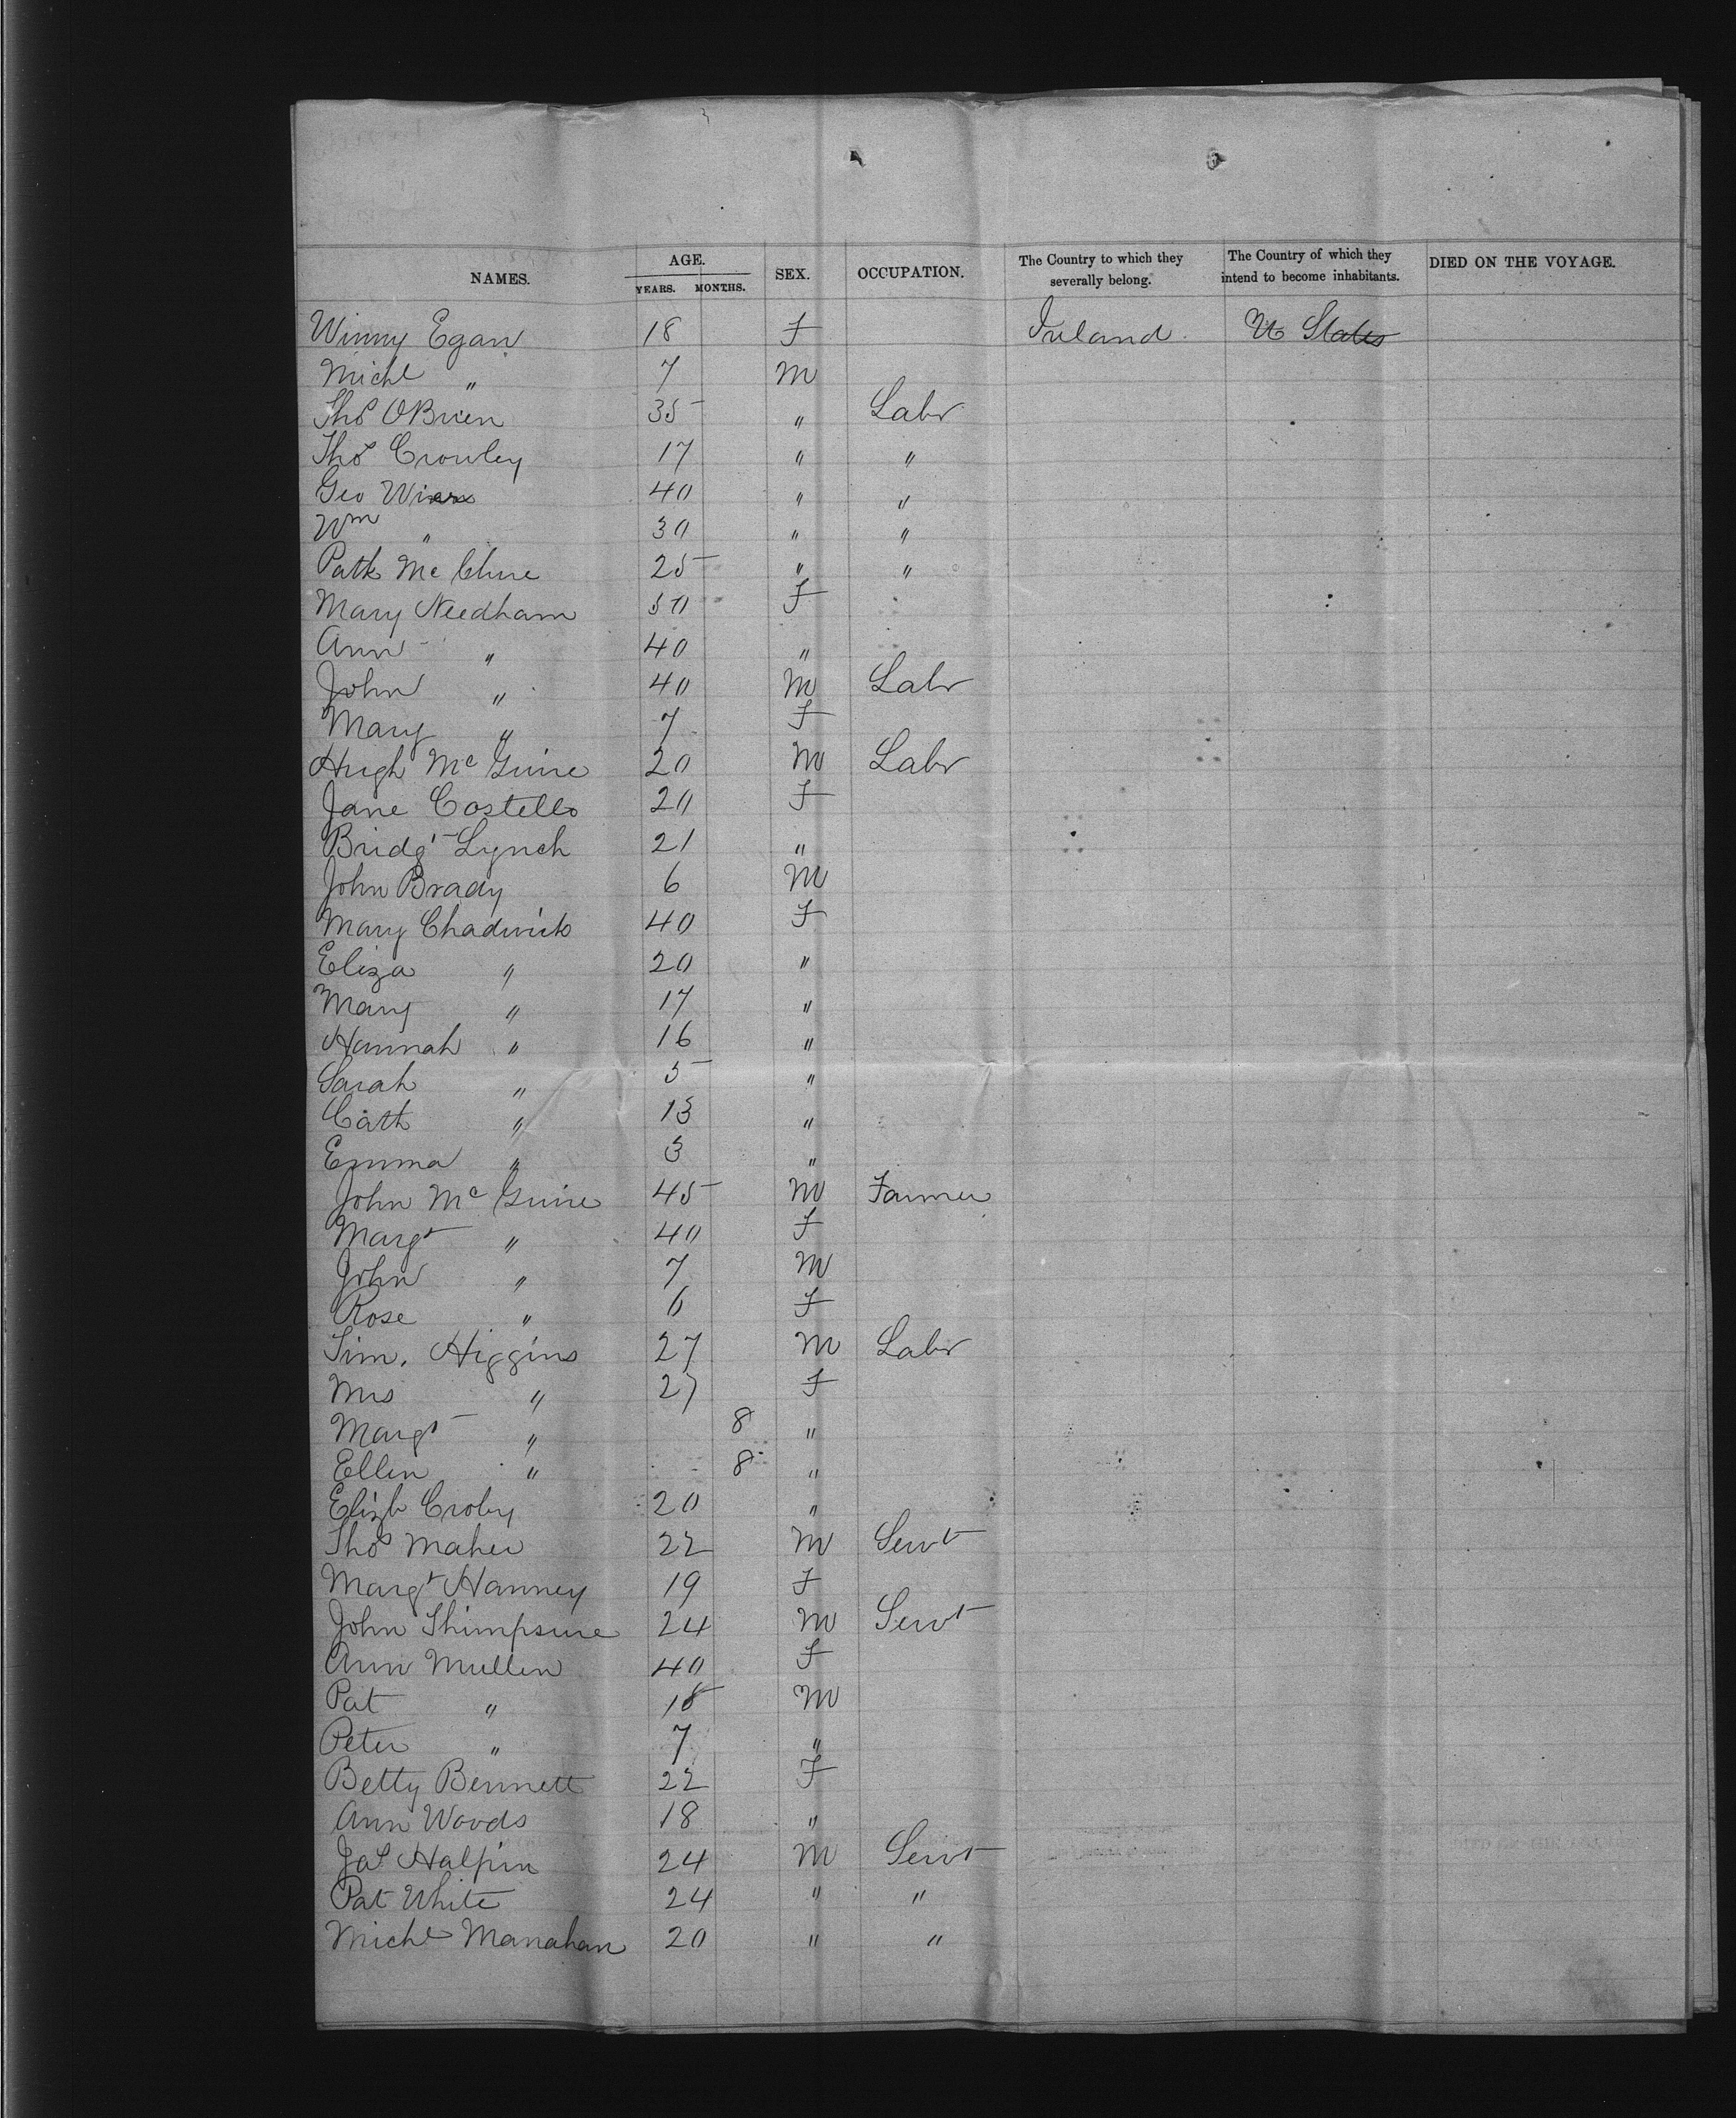 NAMES. AGE. YEARS. MONTHS. SEX. OCCUPATION. The Country to which they severally belong. The Country of which they intend to become inhabitants. DIED ON THE VOYAGE.
Winny Egan 18 F Ireland U States
Michl " 7 M
Thos OBrien 35 " Labr
Thos Crowley 17 " "
Geo 40 " "
Wm " 30 " "
Patk Mc Clure 25 " "
Mary Needham 50 F
Ann " 40 "
John " 40 M Labr
Mary " 7 F
Hugh Mc Guire 20 M Labr
Jane Costello 20 F
Bridgt Lynch 21 "
John Brady 6 M
Mary Chadwick 40 F
Eliza " 20 "
Mary " 17 "
Hannah " 16 "
Sarah " 5 "
Cath " 13 "
Emma " 3 "
John Mc Guire 45 M Farmer
Margt " 40 F
John " 7 M
Rose " 6 F
Tim. Higgins 27 M Labr
Mrs " 27 F
Margt " 8 "
Ellen " 8 "
Elizb Croby 20 "
Thos Maher 22 M Servt
Margt Hanney 19 F
John 24 M Servt
Ann Mullen 40 F
Pat " M
Peter " 7 "
Betty Bennett 22 F
Ann Woods 18 "
Jas Halpin 24 M Servt
Pat White 24 " "
Michl Manahan 20 " "